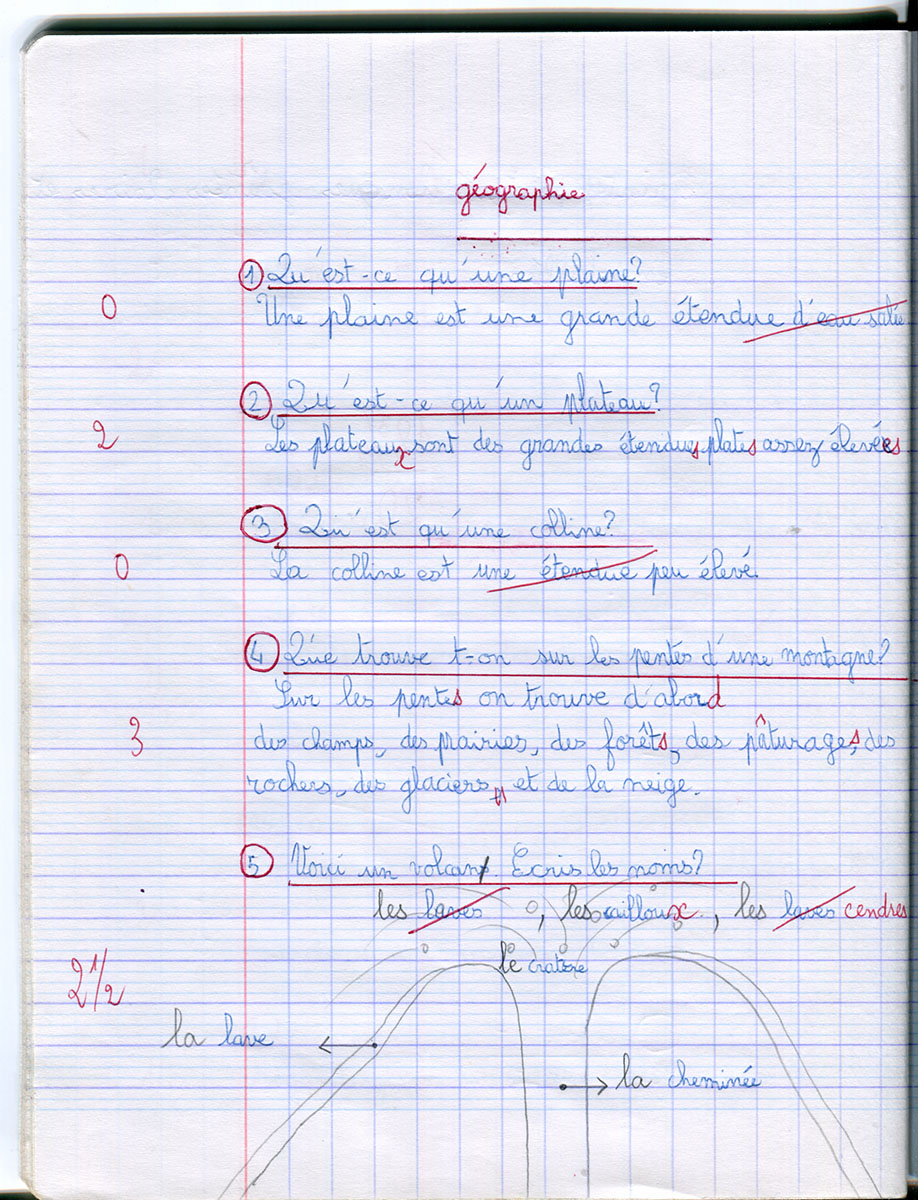 géographie
① Qu'est-ce qu'une plaine?
0
Une plaine est une grande étendue d'eau salée
② Qu'est-ce qu'un plateau?
2
Les plateaux sont des grandes étendues plates assez élevées
③ Qu'est qu'une colline?
0
La colline est une étendue peu élevé.
④ Que trouve t-on sur les pentes d'une montagne?
Sur les pentes on trouve d'abord
3
des champs, des prairies, des forêts, des pâturages, des
rochers, des glaciers, et de la neige.
⑤ Voici un volcan. Ecris les noms?
les laves, les cailloux, les laves cendres
le cratere
2 1/2
la lave
la cheminée